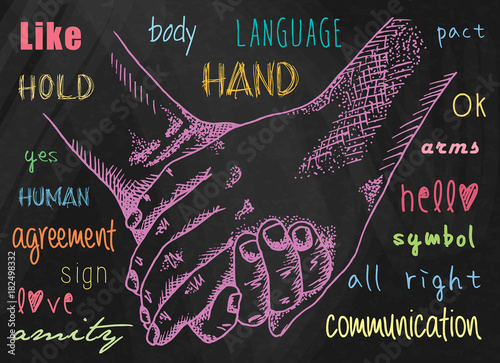 Like
body
LANGUAGE
pact
HOLD
HAND
Ok
yes
arms
HUMAN
hello
agreement
symbol
sign
all right
love
amity
communication
Adobe Stock | #182498332